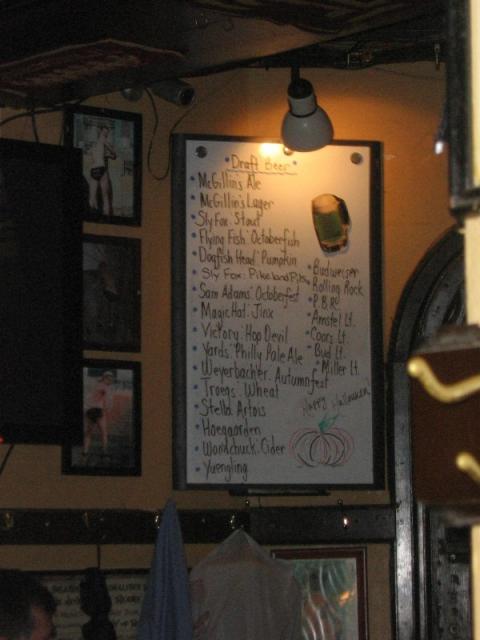 Draft Beer
McGillin's Ale
McGillin's Lager
Sly Fox: Stout
Flying Fish: Octoberfish
Dogfish Head: Pumpkin
Sly Fox: Pikeland Pils
Sam Adams: Octoberfest
Magic Hat: Jinx
Victory: Hop Devil
Yards: Philly Pale Ale
Weyerbacher: Autumnfest
Troegs: Wheat
Stella Artois
Hoegaarden
Woodchuck: Cider
Yuengling
Budweiser
Rolling Rock
P.B.R.
Amstel Lt.
Coors Lt.
Bud Lt.
Miller Lt.
Happy Halloween